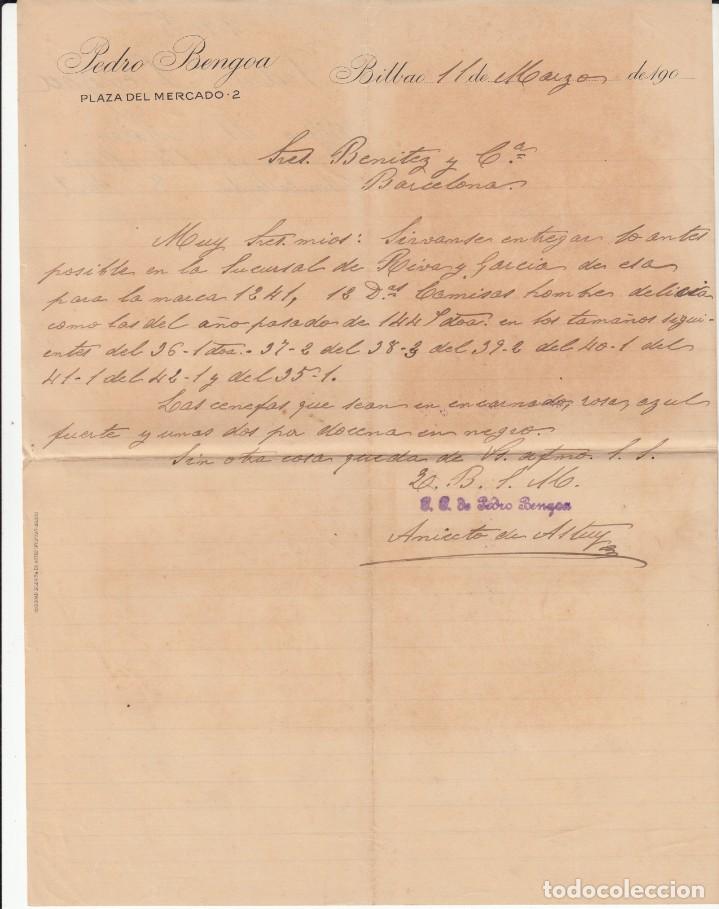 Pedro Bengoa
PLAZA DEL MERCADO · 2
Bilbao 11 de Marzo de 190
Sres. Benitez y Cª
Barcelona.
Muy Sres. mios: Sirvanse entregar lo antes
posible en la Sucursal de Riva y Garcia de esa
para la marca 1241, 12 D.as Camisas hombre delicia
como las del año pasado de 144 dna. en los tamaños segui-
entes del 36-1 dna.- 37-2 del 38-3 del 39-2 del 40-1 del
41-1 del 42-1 y del 35-1.
Las cenefas que sean en encarnado, rosa, azul
fuerte y unas dos por docena en negro.
Sin otra cosa queda de Vs. afmo. S. S.
Q. B. S. M.
P. P. de Pedro Bengoa
Aniceto de Astuy
todocoleccion